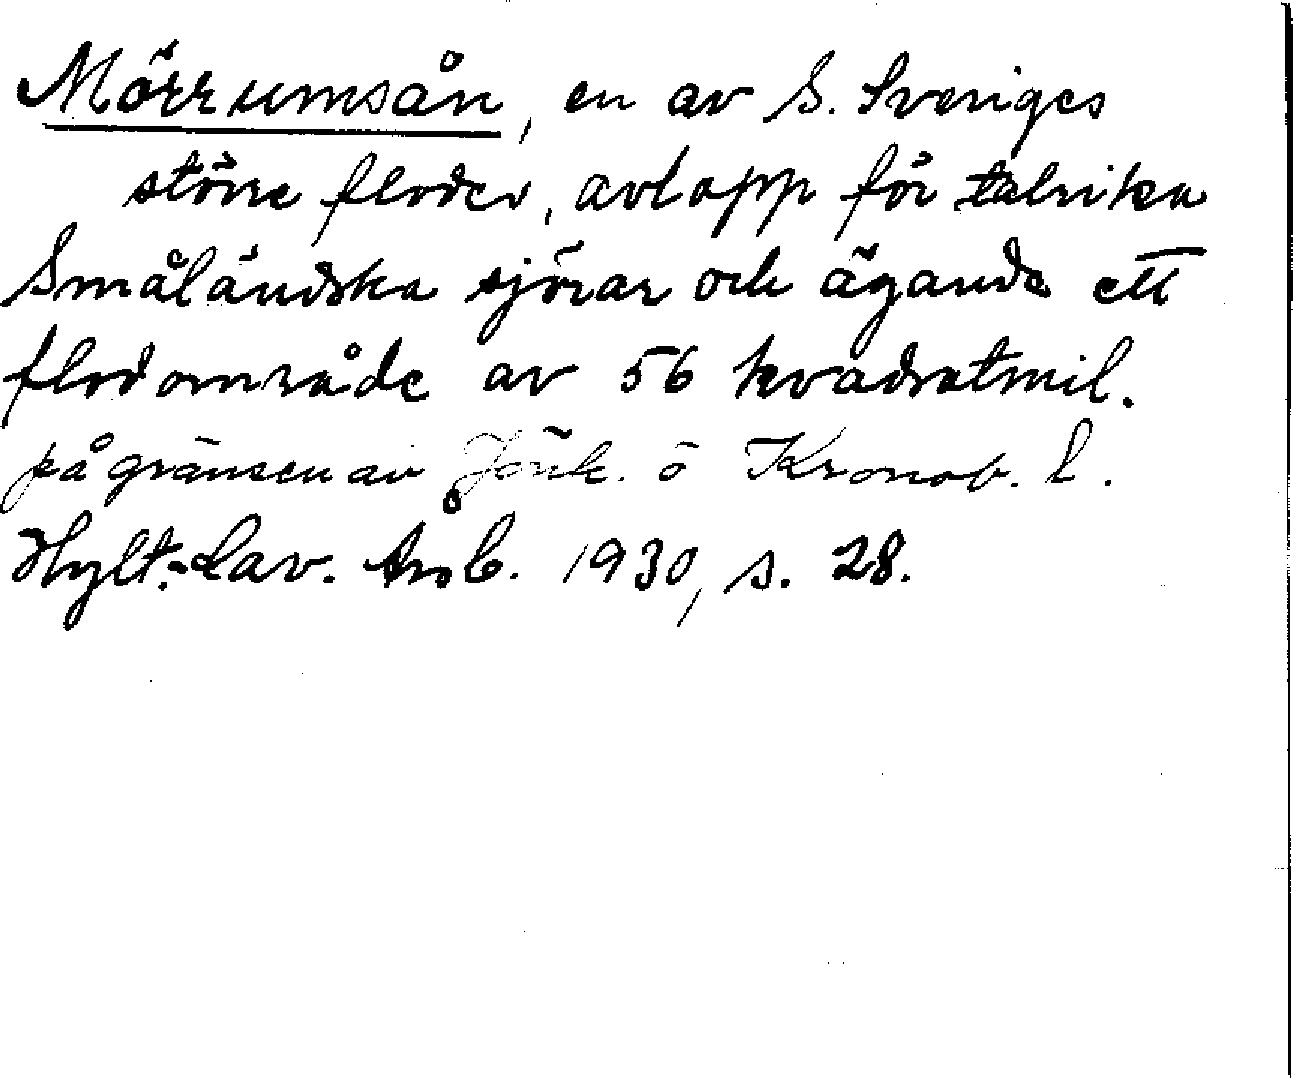 Mörrumsån, en av S. Sveriges
större floder, avlopp för talrika
Småländska sjöar och ägande ett
flodområde av 56 kvadratmil.
på gränsen av Jönk. o Kronob. l.
Hylt.-Cav. Årsb. 1930, s. 28.